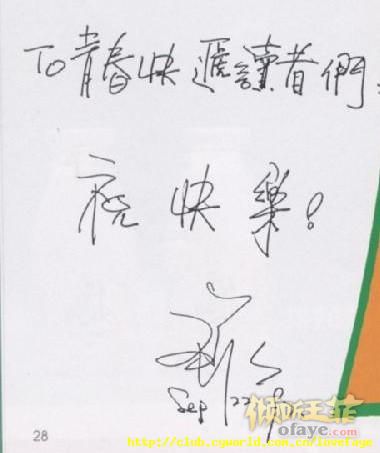 TO青春快遞讀者們:
祝 快樂!
Sep 22
倾听王菲
ofaye.com
28
http://club.cyworld.com.cn/lovefaye